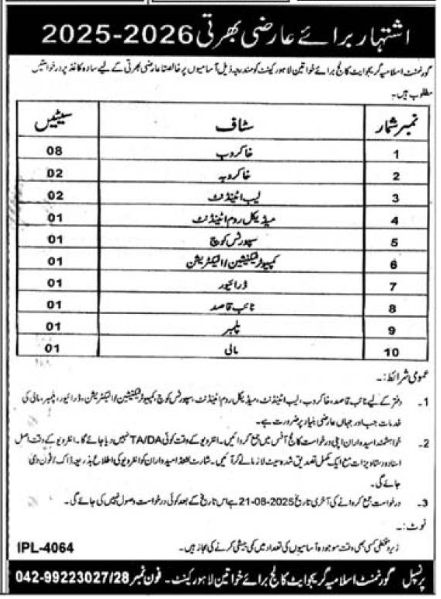 اشتہار برائے عارضی بھرتی 2025-2026
گورنمنٹ اسلامیہ گریجوایٹ کالج برائے خواتین لاہور کینٹ کو مندرجہ ذیل آسامیوں پر خالصتاً عارضی بھرتی کے لیے سادہ کاغذ پر درخواستیں
مطلوب ہیں۔
نمبر شمار سٹاف سیٹیں
1 خاکروب 08
2 خاکروبہ 02
3 لیب اٹینڈنٹ 02
4 میڈیکل روم اٹینڈنٹ 01
5 سپورٹس کوچ 01
6 کمپیوٹر ٹیکنیشین/الیکٹریشن 01
7 ڈرائیور 01
8 نائب قاصد 01
9 پلمبر 01
10 مالی 01
عمومی شرائط:۔
1۔ دفتر کے لیے نائب قاصد، خاکروب، لیب اٹینڈنٹ، میڈیکل روم اٹینڈنٹ، سپورٹس کوچ، کمپیوٹر ٹیکنیشین/الیکٹریشن، ڈرائیور، پلمبر، مالی کی
خدمات جب اور جہاں عارضی بنیاد پر ضرورت ہے۔
2۔ خواہشمند امیدواران اپنی درخواست کالج آفس میں جمع کرائیں۔ انٹرویو کے وقت کوئی TA/DA نہیں دیا جائے گا۔ انٹرویو کے وقت اصل
اسناد و دستاویزات مع ایک مکمل تصدیق شدہ سیٹ لازماً لے کر آئیں۔ شارٹ لسٹڈ امیدواران کو انٹرویو کی اطلاع بذریعہ ڈاک/فون دی
جائے گی۔
3۔ درخواست جمع کروانے کی آخری تاریخ 21-08-2025 ہے اس تاریخ کے بعد کوئی درخواست وصول نہیں کی جائے گی۔
نوٹ:۔
زیر دستخطی کسی بھی وقت موجودہ آسامیوں کی تعداد میں کمی بیشی کرنے کی مجاز ہیں۔
IPL-4064
پرنسپل گورنمنٹ اسلامیہ گریجوایٹ کالج برائے خواتین لاہور کینٹ۔ فون نمبر 042-99223027/28